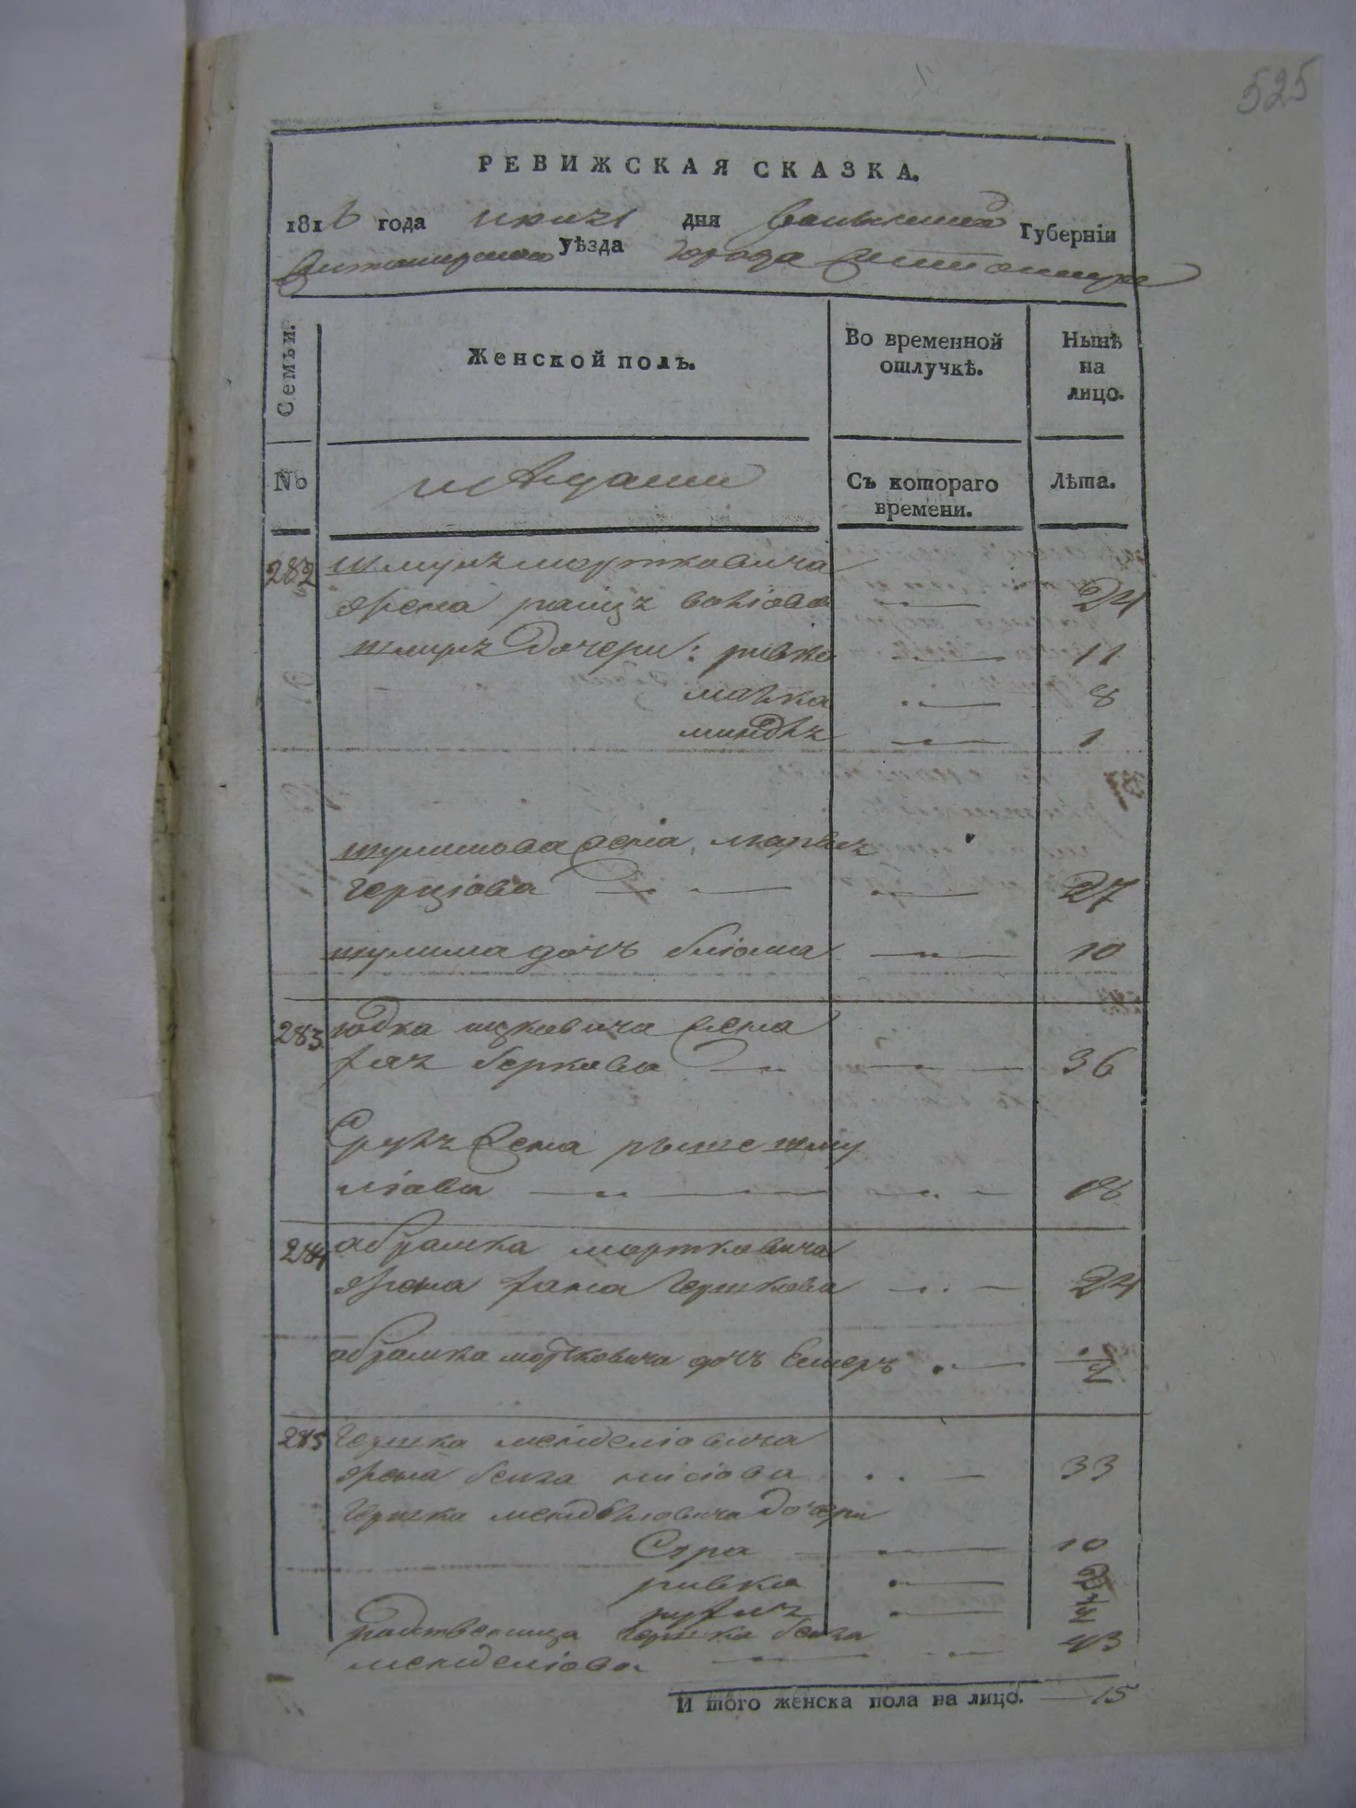 525
РЕВИЖСКАЯ СКАЗКА.
1816 года июля дня Волынской Губерніи
Житомирскаго уѣзда города Житомира
Семьи.
Женской полъ.
Во временной отлучкѣ.
Нынѣ на лицо.
№
Съ котораго времени.
Лѣта.
282 шмуль мортковича
жена волiова 24
шмуль дочери: ривка 11
малка 8
миндль 1
шулимова жена,
герцiова 27
шулима дочь блюма 10
283 юдка ицковича жена
беркова 36
жена
лiова 18
284 абрамка мортковича
жена хана гершкова 24
абрамка мортковича дочь Естеръ 1/2
285 гершка менделiовича
жена бейла 33
гершка мендѣлiовича дочери
Сура 10
ривка
рухль
родственица гершка бейла
менделiова 43
И того женска пола на лицо. 15